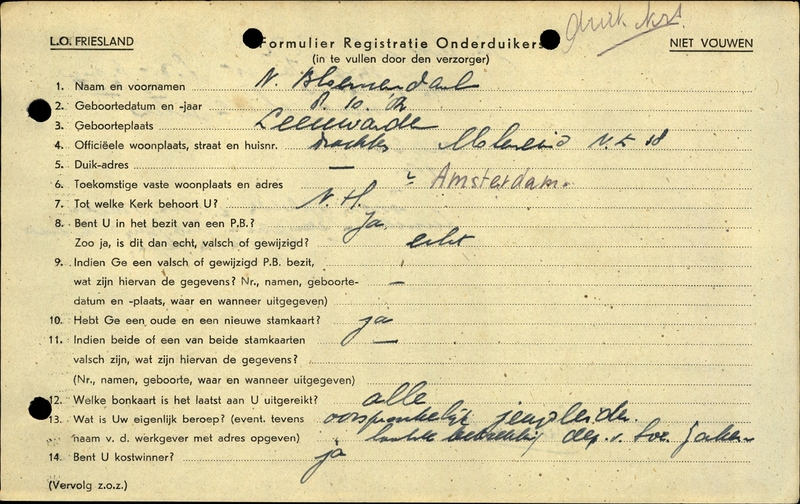 L.O. FRIESLAND
Formulier Registratie Onderduikers
NIET VOUWEN
(in te vullen door den verzorger)
1. Naam en voornamen N. Bloemendaal
2. Geboortedatum en -jaar 8.10.02
3. Geboorteplaats Leeuwarden
4. Officiëele woonplaats, straat en huisnr. Drachten N.Z. 38
5. Duik-adres —
6. Toekomstige vaste woonplaats en adres Amsterdam.
7. Tot welke Kerk behoort U? N.H.
8. Bent U in het bezit van een P.B.? Ja
Zoo ja, is dit dan echt, valsch of gewijzigd? echt
9. Indien Ge een valsch of gewijzigd P.B. bezit,
wat zijn hiervan de gegevens? Nr., namen, geboorte- —
datum en -plaats, waar en wanneer uitgegeven)
10. Hebt Ge een oude en een nieuwe stamkaart? ja
11. Indien beide of een van beide stamkaarten —
valsch zijn, wat zijn hiervan de gegevens?
(Nr., namen, geboorte, waar en wanneer uitgegeven)
12. Welke bonkaart is het laatst aan U uitgereikt? alle
13. Wat is Uw eigenlijk beroep? (event. tevens oorspronkelijk jeugdleider
naam v. d. werkgever met adres opgeven) laatste betrekking dep. v. Soc. Zaken
14. Bent U kostwinner? ja
(Vervolg z.o.z.)